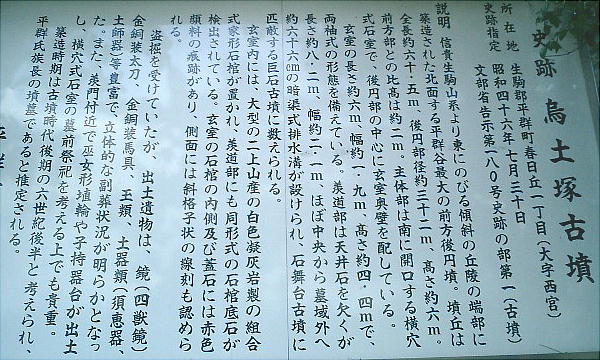 史跡 烏土塚古墳
所在地 生駒郡平群町春日丘一丁目(大字西宮)
史跡指定 昭和四十六年七月三十日
文部省告示第一八〇号史跡の部第一(古墳)
説明 信貴生駒山系より東にのびる傾斜の丘陵の端部に
築造された北面する平群谷最大の前方後円墳。墳丘は
全長約六十・五m、後円部径約三十二m、高さ約六m。
前方部との比高は約二m。主体部は南に開口する横穴
式石室で、後円部の中心に玄室奥壁を配している。
玄室の長さ約六m、幅約一・九m、高さ約四・四mで、
両袖式の形態を備えている。羨道部は天井石を欠くが
長さ約八・二m、幅約二・一m、ほぼ中央から墓域外へ
約六十六mの暗渠式排水溝が設けられ、石舞台古墳に
匹敵する巨石古墳に数えられる。
玄室内には、大型の二上山産の白色凝灰岩製の組合
式家形石棺が置かれ、羨道部にも同形式の石棺底石が
検出されている。玄室の石棺の内側及び蓋石には赤色
顔料の痕跡があり、側面には斜格子状の線刻も認めら
れる。
盗掘を受けていたが、出土遺物は、鏡(四獣鏡)
金銅装太刀、金銅装馬具、玉類、土器類(須恵器、
土師器)等豊富で、立体的な副葬状況が明らかとなっ
た。また、羨門付近で巫女形埴輪や子持器台が出土
し、横穴式石室の墓前祭祀を考える上でも貴重。
築造時期は古墳時代後期の六世紀後半と考えられ、
平群氏族長の墳墓であると推定される。